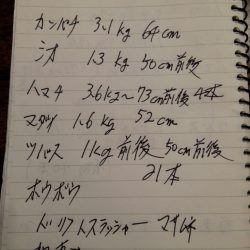 カンパチ 3.1kg 64cm
シオ 1.3kg 50cm前後
ハマチ 3.6kg〜73cm前後 4本
マダイ 1.6kg 52cm
ツバス 1kg前後 50cm前後
21本
ホウボウ
ドリフトスラッシャー